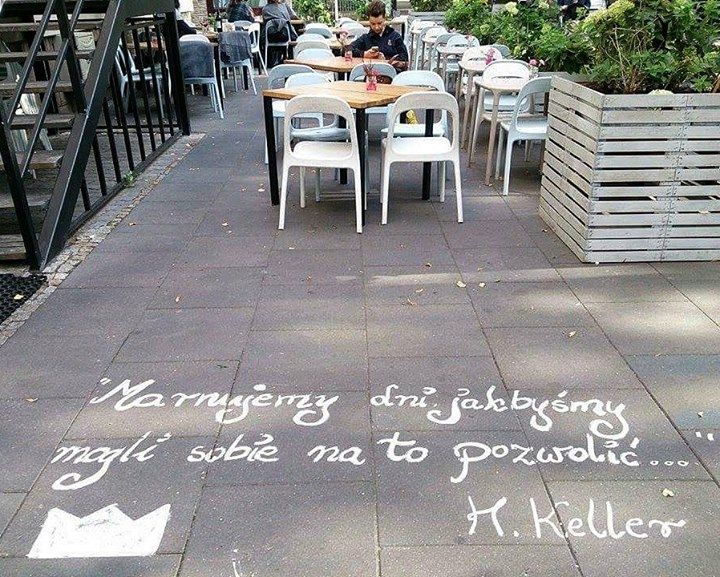 "Marnujemy dni, jakbyśmy
mogli sobie na to pozwolić..."
H. Keller